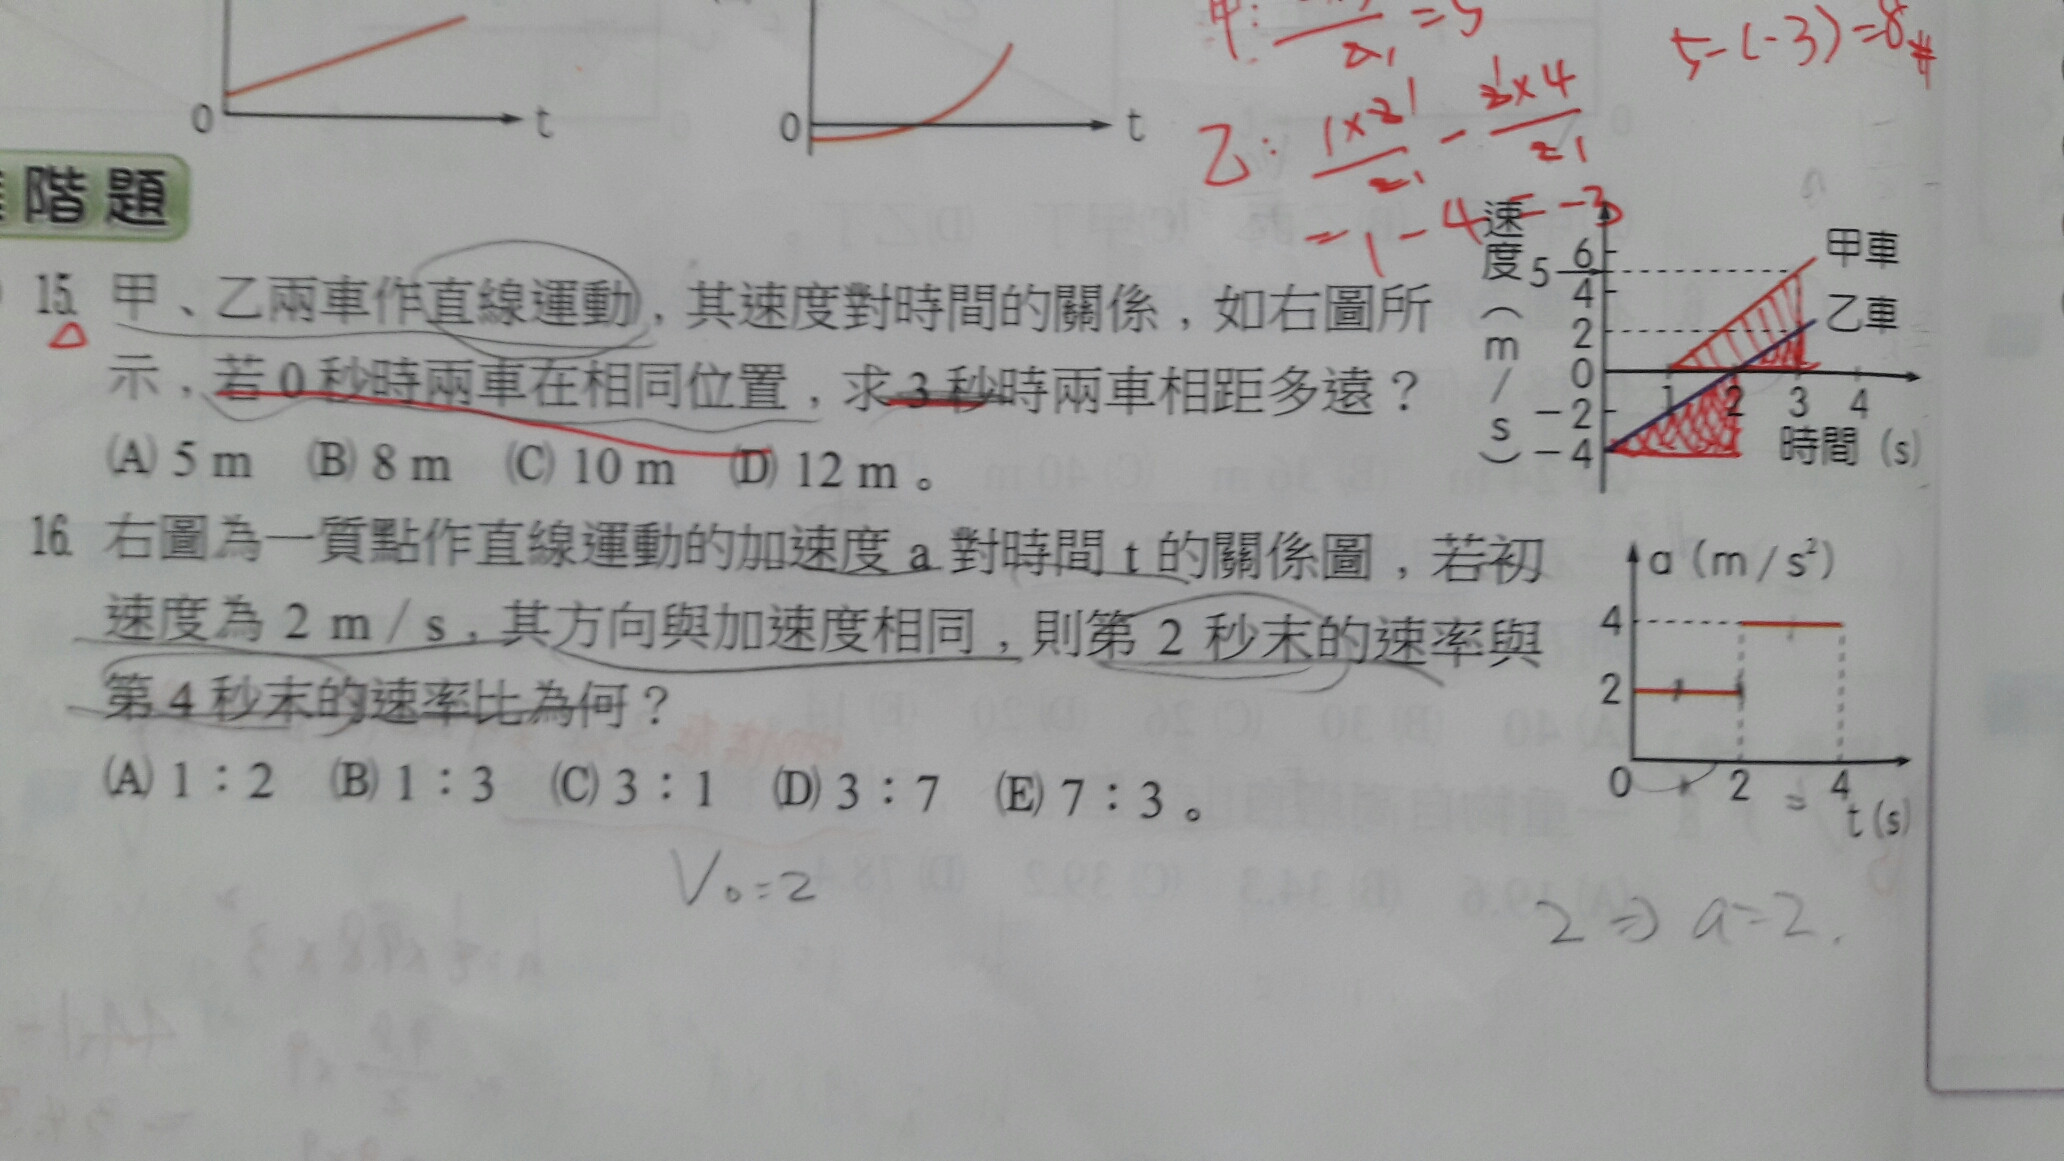 0 t
0 t
=5
5-(-3)=8#
乙: 1×2/2 - 2×4/2
=1-4=-3
階題
15. 甲、乙兩車作直線運動，其速度對時間的關係，如右圖所
示，若0秒時兩車在相同位置，求3秒時兩車相距多遠？
(A) 5 m (B) 8 m (C) 10 m (D) 12 m。
速度(m/s)
6
5
4
2
0
-2
-4
甲車
乙車
1 2 3 4
時間 (s)
16. 右圖為一質點作直線運動的加速度 a 對時間 t 的關係圖，若初
速度為 2 m/s，其方向與加速度相同，則第 2 秒末的速率與
第 4 秒末的速率比為何？
(A) 1：2 (B) 1：3 (C) 3：1 (D) 3：7 (E) 7：3。
a (m/s²)
4
2
0 2 4
t (s)
V₀=2
2⇒a=2.